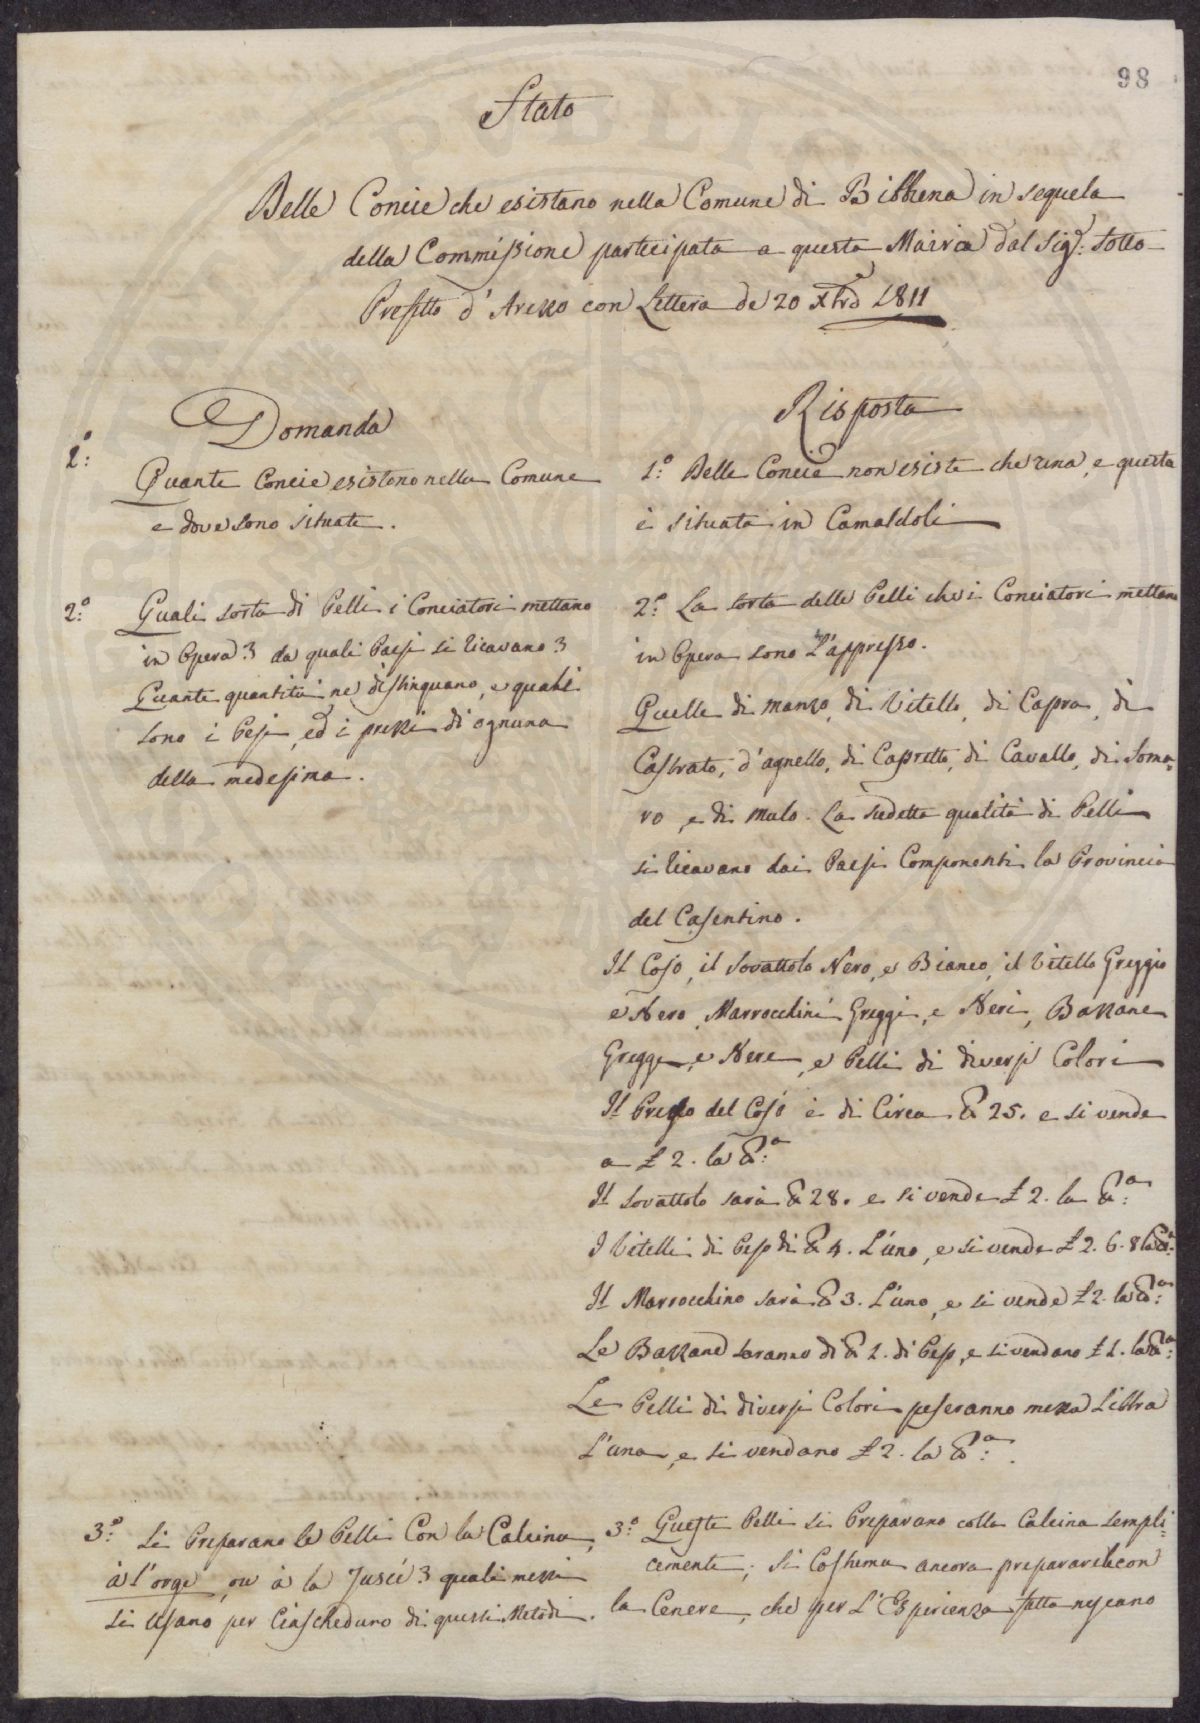 98
Stato
Delle Concie che esistano nella Comune di Bibbena in sequela
della Commissione partecipata a questa Mairia dal Sig.r Sotto
Prefetto d'Arezzo con Lettera de 20 Xbre 1811
Domanda
1.°
Quante Concie esistono nella Comune
e dove sono situate.
2.° Quali sorta di Pelli i Conciatori mettano
in Opera? da quali Paesi si licavano?
Quante quantità ne distinguano, e quali
sono i Pesi, ed i prezzi di ognuna
della medesima.
3.° Si Preparano le Pelli Con la Calcina,
à l'orge, ou à la Jusée? quali mezzi
si usano per Ciascheduno di questi Metodi.
Risposta
1.° Delle Concie non esiste che una, e questa
è situata in Camaldoli
2.° La sorta delle Pelli che i Conciatori mettano
in Opera sono L'appresso.
Quelle di manzo, di Vitello, di Capra, di
Castrato, d'agnello, di Capretto, di Cavallo, di Soma=
ro, e di Mulo. La sudetta qualità di Pelli
si licavano dai Paesi Componenti la Provincia
del Casentino.
Il Cojo, il Sovattolo Nero, e Bianco, il Vitello Greggio
e Nero, Marrocchini Greggi, e Neri, Bazzane
Gregge, e Nere, e Pelli di diversi Colori
Il Peso del Cojo è di Circa ℔ 25. e si vende
a £ 2. la ℔.a
Il Sovattolo sarà ℔ 28. e si vende £ 2. la ℔.a
I Vitelli di Peso di ℔ 4. L'uno, e si vende £ 2. 6. 8 la ℔.a
Il Marrocchino sarà ℔ 3. L'uno, e si vende £ 2. la ℔.a
Le Bazzane saranno di ℔ 1. di Peso, e si vendano £ 1. la ℔.a
Le Pelli di diversi Colori peseranno mezza Libbra
L'una, e si vendano £ 2. la ℔.a
3.° Queste Pelli si Preparano colla Calcina sempli=
cemente; si Costuma ancora prepararle con
la Cenere, che per L'Esperienza fatta nescano